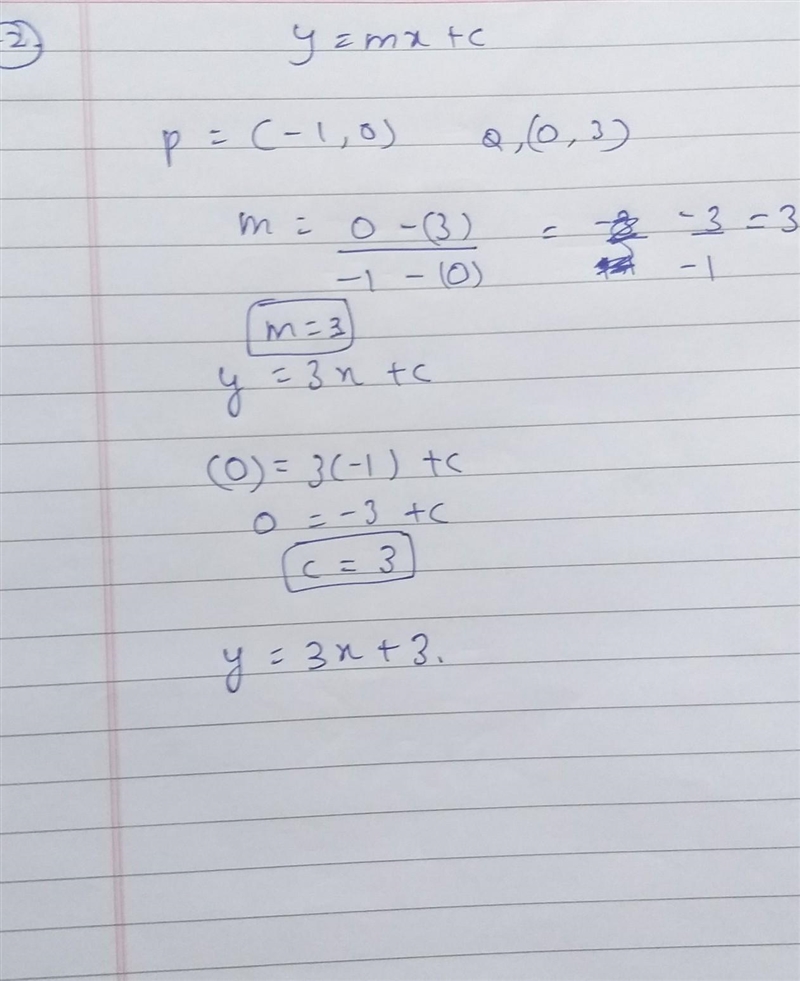 2.
y = mx + c
p = (-1, 0) Q, (0, 3)
m = 0 - (3) / -1 - (0) = -3 / -1 = 3
m = 3
y = 3x + c
(0) = 3(-1) + c
0 = -3 + c
c = 3
y = 3x + 3.